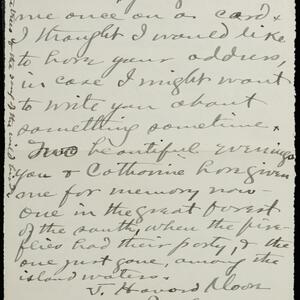 me once on a card &
I thought I would like
to have your address,
in case I might want
to write you about
something sometime.
Two beautiful evenings
you & Catherine have given
me for memory now—
one in the great forest
of the south, when the fire-
flies had their party, & the
one just gone, among the
island waters.
J. Howard Moore